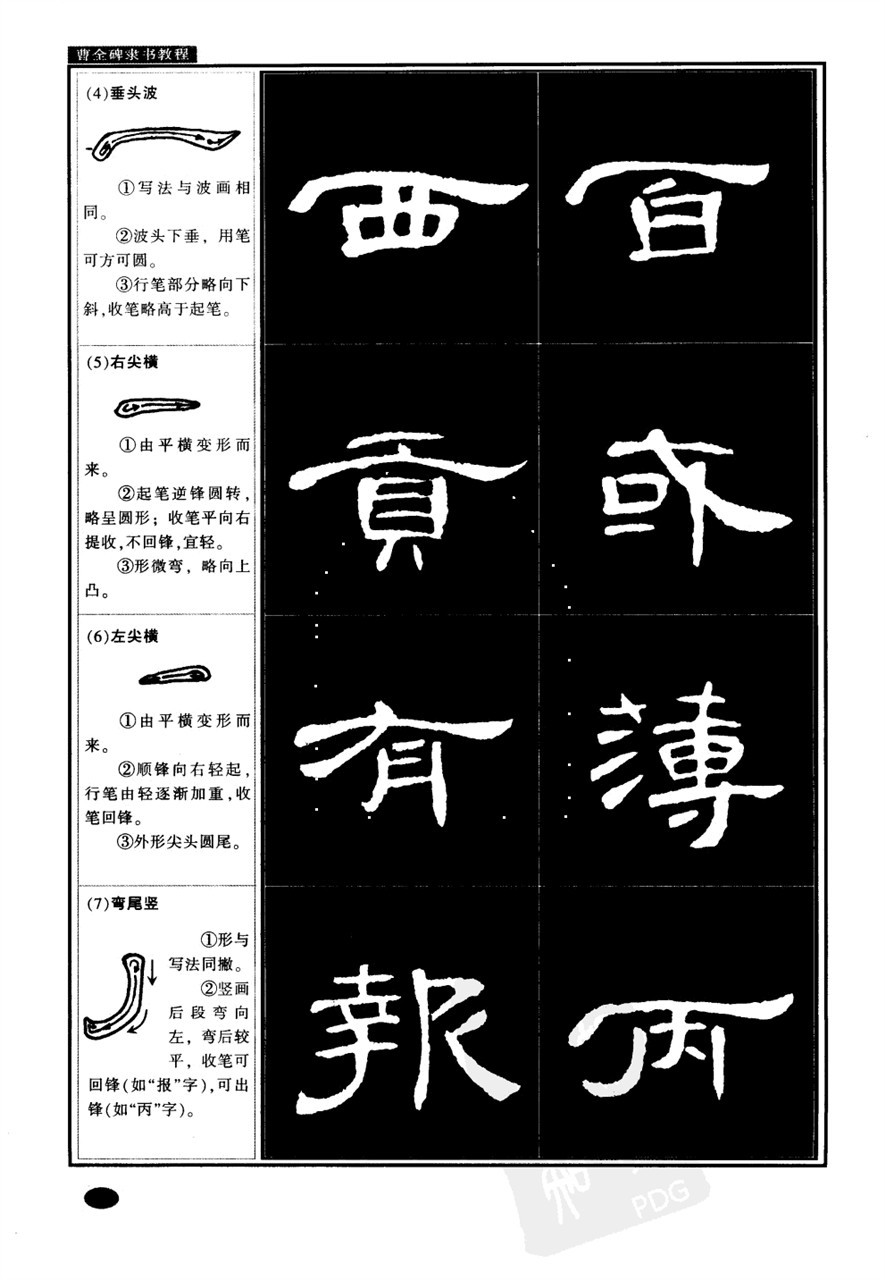 曹全碑隶书教程
(4)垂头波
①写法与波画相
同。
②波头下垂，用笔
可方可圆。
③行笔部分略向下
斜,收笔略高于起笔。
西 百
(5)右尖横
①由平横变形而
来。
②起笔逆锋圆转,
略呈圆形；收笔平向右
提收,不回锋,宜轻。
③形微弯，略向上
凸。
貢 或
(6)左尖横
①由平横变形而
来。
②顺锋向右轻起,
行笔由轻逐渐加重,收
笔回锋。
③外形尖头圆尾。
有 薄
(7)弯尾竖
①形与
写法同撇。
②竖画
后段弯向
左，弯后较
平，收笔可
回锋(如“报”字),可出
锋(如“丙”字)。
報 丙
PDG